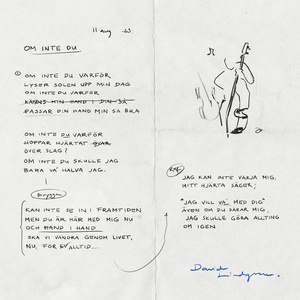 11 aug -63
OM INTE DU
① OM INTE DU VARFÖR
LYSER SOLEN UPP MIN DAG
OM INTE DU VARFÖR
KÄNNS MIN HAND I DIN SÅ
PASSAR DIN HAND MIN SÅ BRA
OM INTE DU VARFÖR
HOPPAR HJÄRTAT
ÖVER SLAG?
OM INTE DU SKULLE JAG
BARA VA' HALVA JAG.
Brygga
KAN INTE SE IN I FRAMTIDEN
MEN DU ÄR HÄR MED MIG NU
OCH HAND I HAND
SKA VI VANDRA GENOM LIVET,
NU, FÖR ALLTID...
Ref.
JAG KAN INTE VÄRJA MIG,
MITT HJÄRTA SÄGER;
"JAG VILL VA' MED DIG"
ÄVEN OM DU SÅRAR MIG,
JAG SKULLE GÖRA ALLTING
OM IGEN
David
Lindgren